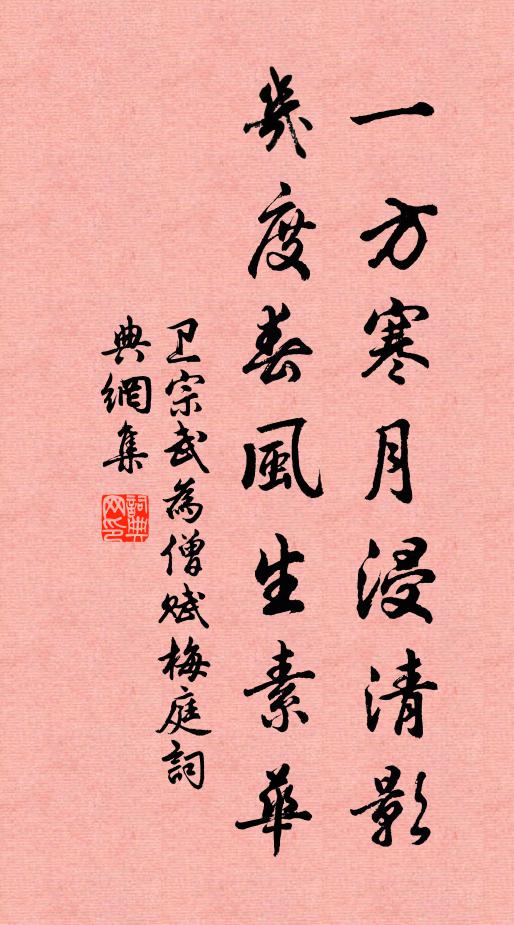 一方寒月浸清影
幾度春風生素華
卫宗武為僧赋梅庭詞
典網集
詞典网印